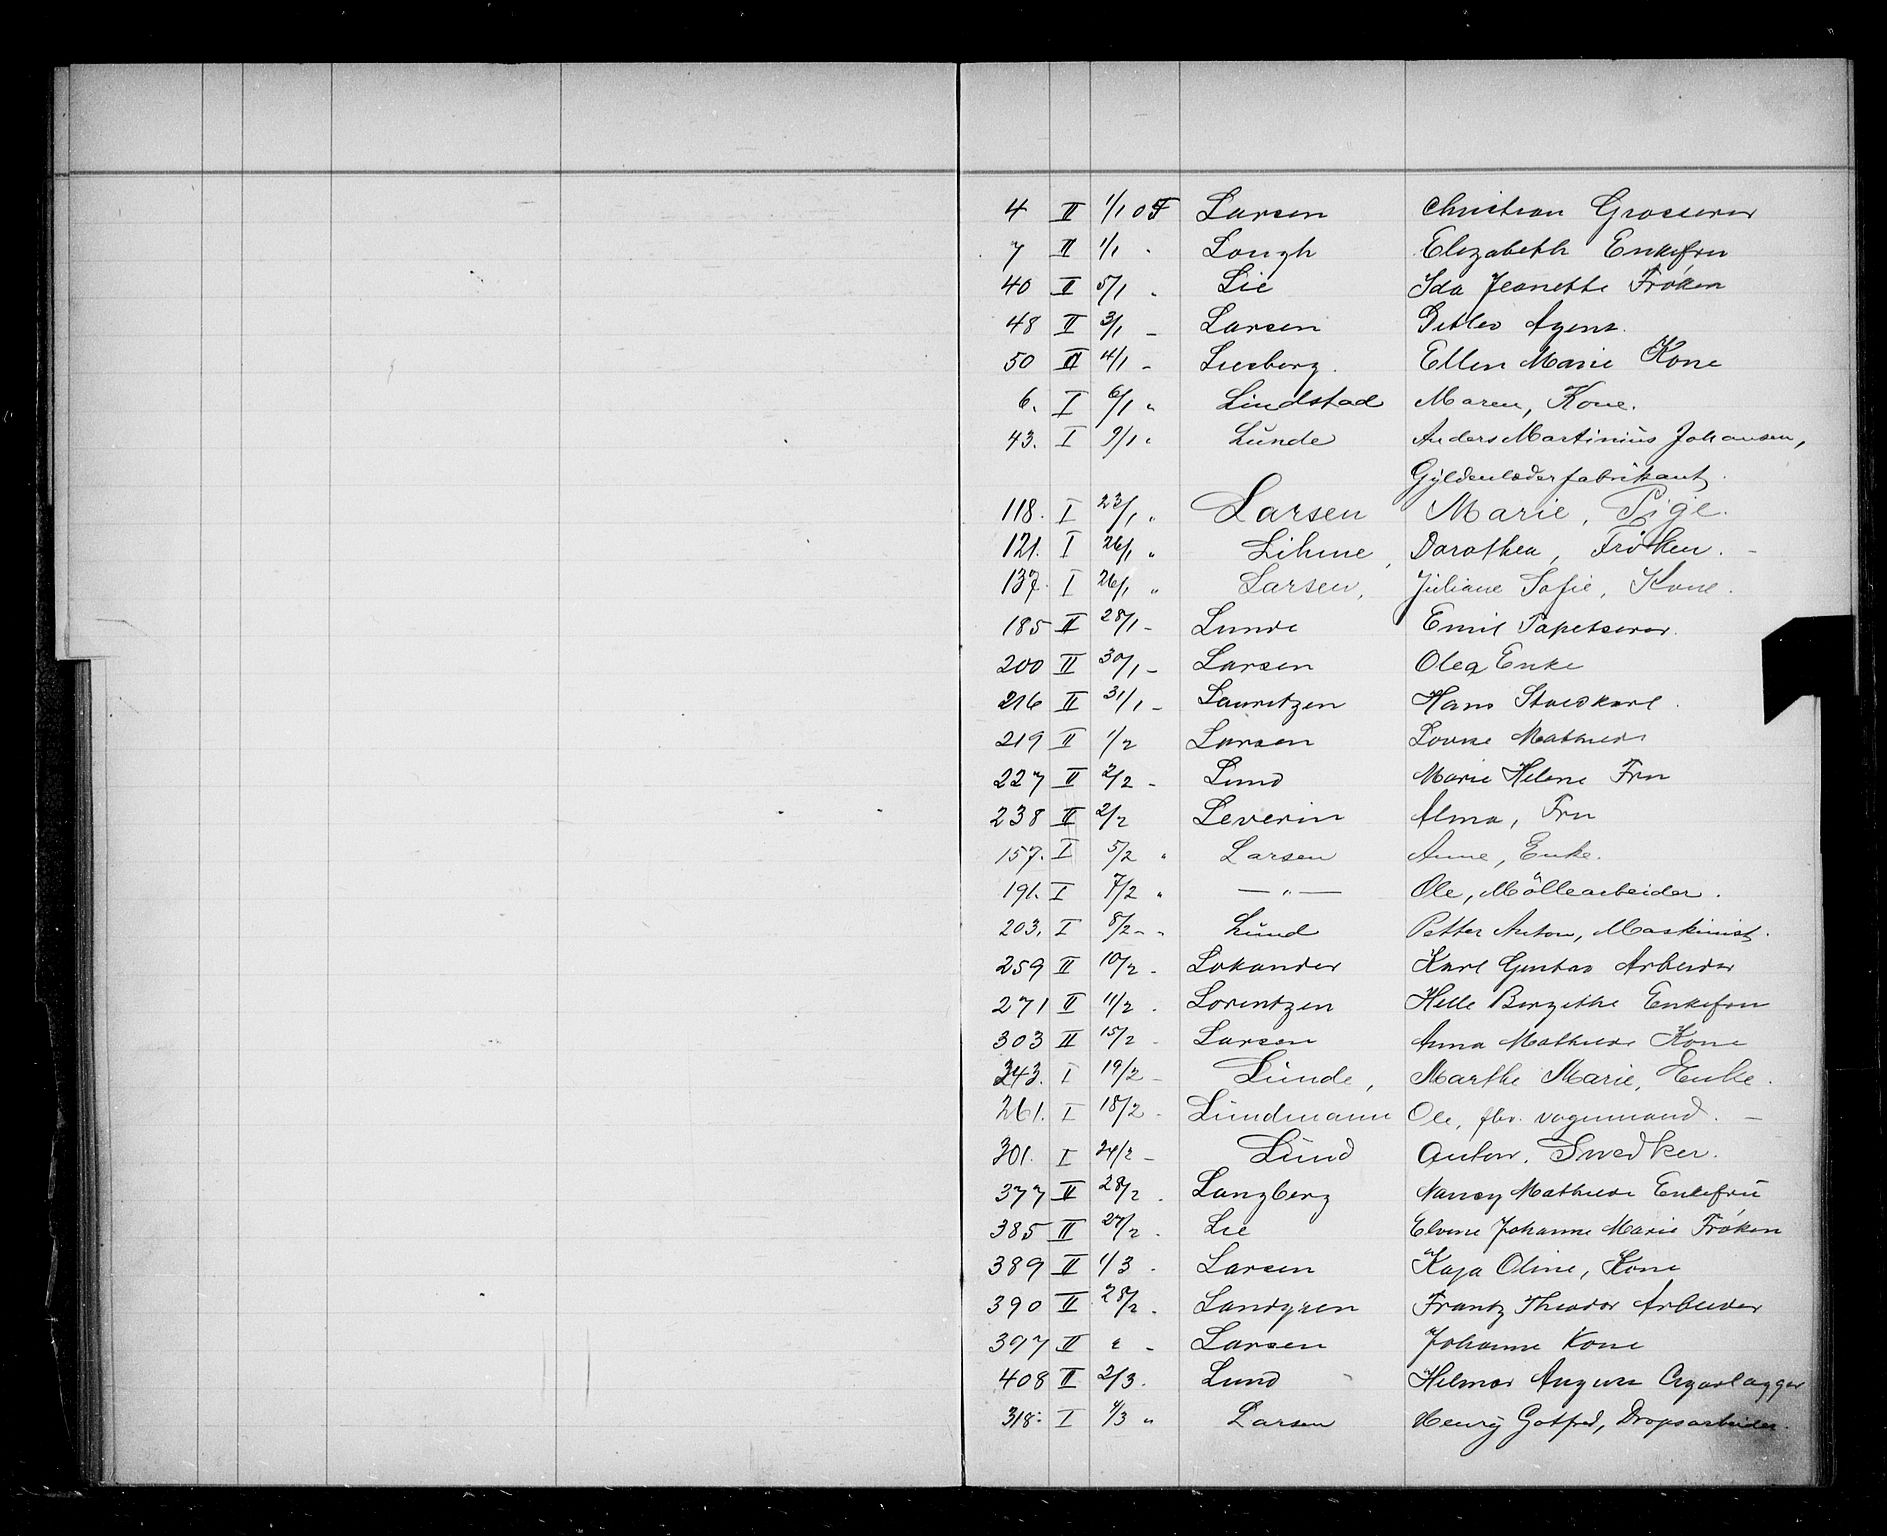 4 II 1/1 07 Larsen Christian Grosserer
7 II 1/1 - Lough Elizabeth Enkefru
40 II 5/1 - Lie Ida Jeanette Frøken
48 II 3/1 - Larsen Detlev Agent
50 II 4/1 - Liesberg. Ellen Marie Kone
6. I 6/1 " Lindstad Maren, Kone.
43. I 9/1 " Lunde Anders Martinius Johansen,
Gyldenlæderfabrikant.
118. I 23/1 " Larsen Marie, Pige.
121. I 26/1 " Lihme, Dorothea, Frøken. -
137. I 26/1 " Larsen, Juliane Sofie, Kone.
185 II 28/1 - Lunde Emil Tapetserer.
200 II 30/1 - Larsen Olea Enke
216 II 31/1 - Lauritzen Hans Staldkarl.
219 II 1/2 Larsen Lovise Mathilde
227 II 2/2 - Lund Marie Helene Fru
238 II 2/2 Leverin Alma, Fru
157. I 5/2 " Larsen Anne, Enke.
191. I 7/2 " — " — Ole, Møllearbeider.
203. I 8/2 - " Lund Petter Anton, Maskinist.
259 II 10/2 - Lokander Karl Gustav Arbeider
271 II 11/2 - Lorentzen Helle Bergithe Enkefru
303 II 15/2 - Larsen Anna Mathilde Kone
243. I 19/2 - Lunde, Marthe Marie, Enke.
261. I 18/2 - Lundmann Ole, fhv. vognmand. -
301. I 24/2 - Lund Anton, Snedker.
377 II 28/2 - Langberg Nancy Mathilde Enkefru
385 II 27/2 - Lie Elvine Johanne Marie Frøken
389 II 1/3 - Larsen Kaja Oline, Kone
390 II 28/2 - Landgren Frantz Theodor Arbeider
397 II " - Larsen Johanne Kone
408 II 2/3. Lund Hilmar August Cigarlagger
318. I 4/3 " Larsen Henry Gotfred, Dropsarbeider.